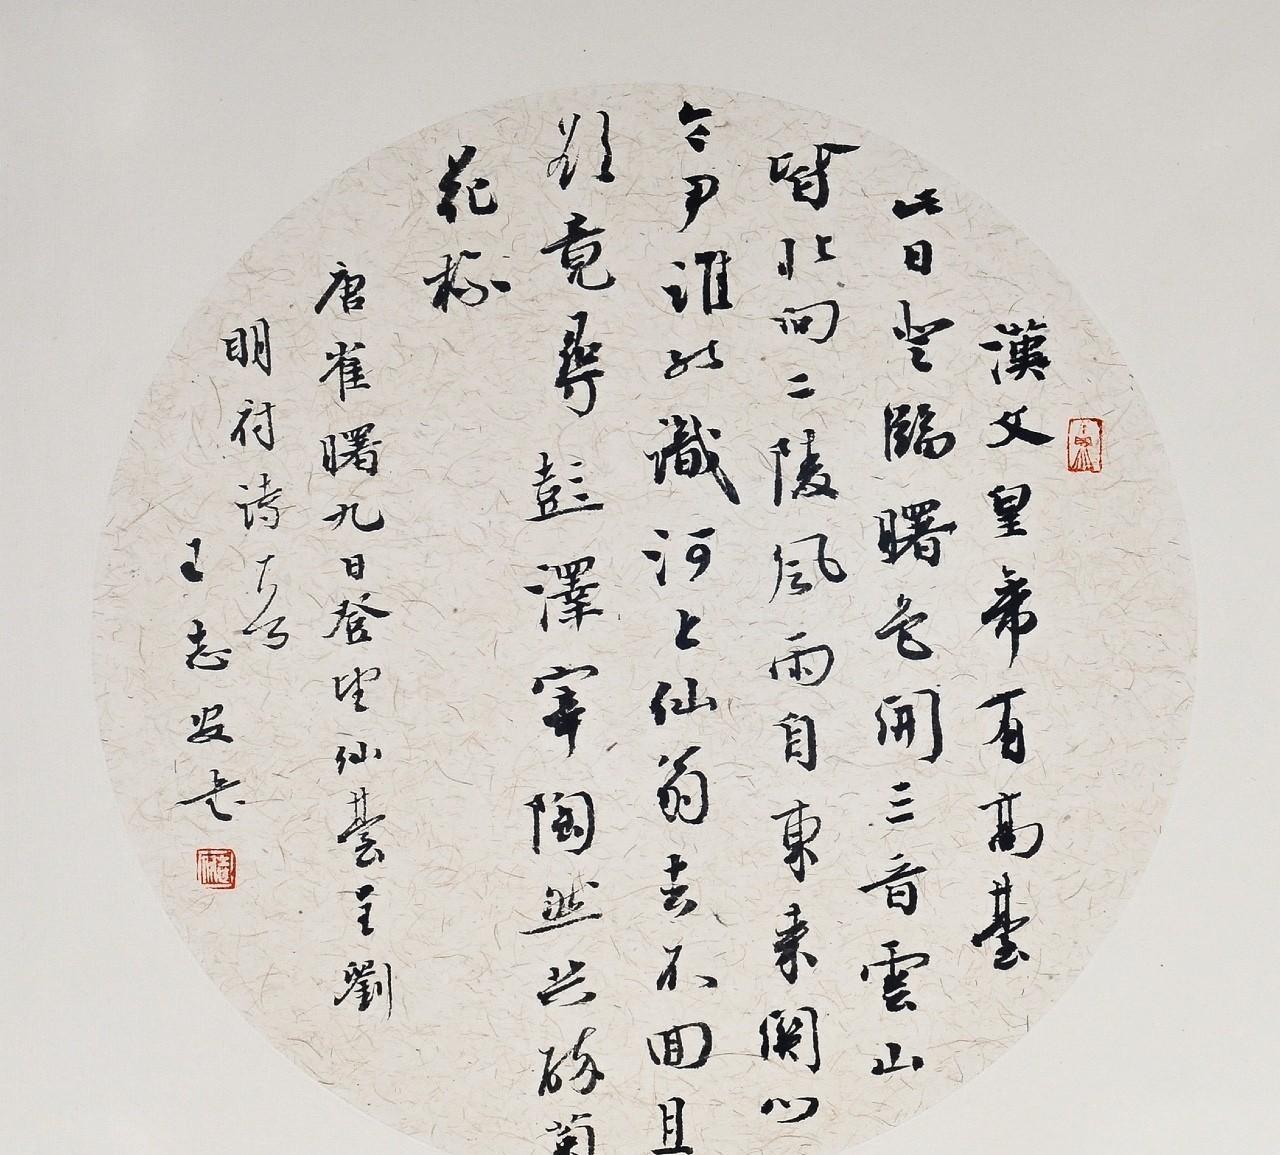 漢文皇帝有高臺
此日登臨曙色開三晉雲山
皆北向二陵風雨自東來關門
令尹誰能識河上仙翁去不回且
欲竟尋彭澤宰陶然共醉菊
花杯
唐崔曙九日登望仙臺呈劉
明府詩一首
王志安書